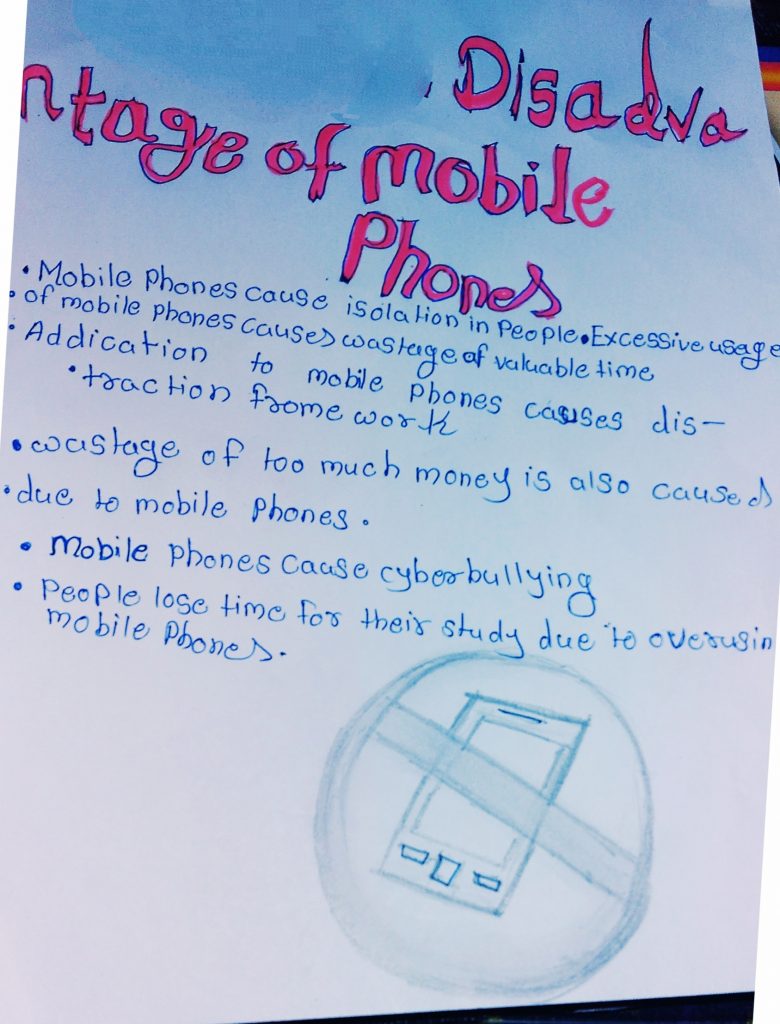 Disadva
ntage of mobile
Phones
• Mobile Phones cause isolation in People. • Excessive usage
• of mobile phones causes wastage of valuable time
• Addication to mobile phones causes dis-
• traction frome work
• wastage of too much money is also caused
• due to mobile phones.
• Mobile phones cause cyberbullying
• People lose time for their study due to overusin
mobile Phones.